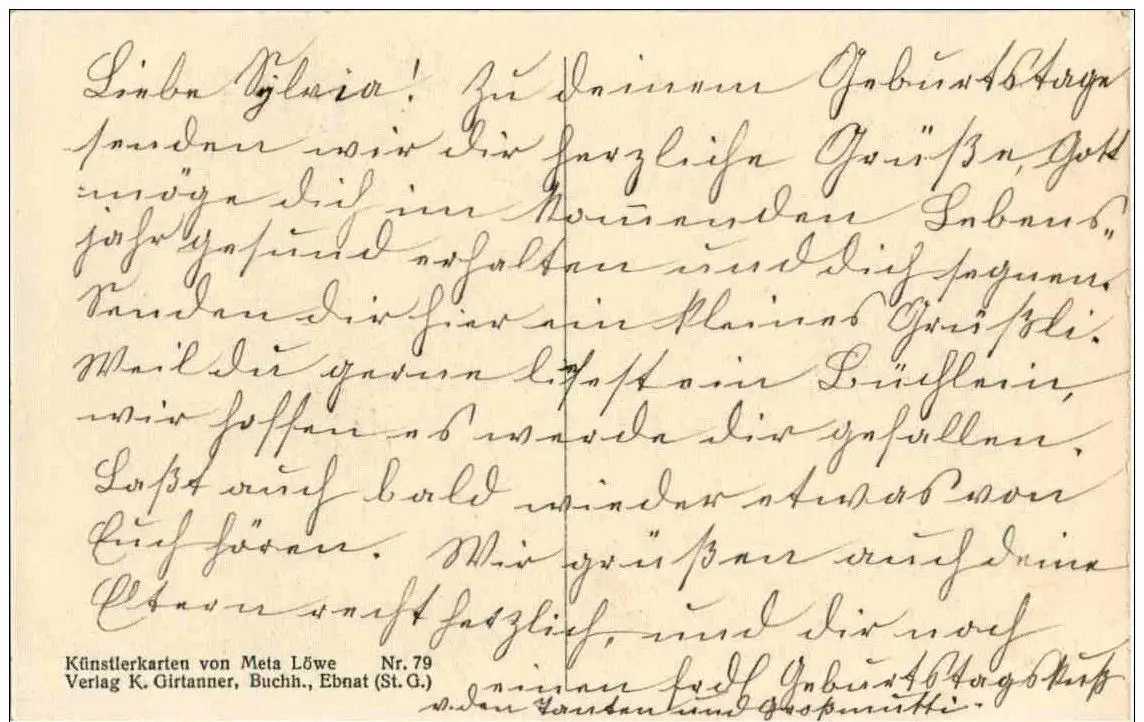 Liebe Sylvia! Zu deinem Geburtstage
senden wir dir herzliche Grüße, Gott
möge dich im kom̅enden Lebens„
jahr gesund erhalten und dich segnen.
Senden dir hier ein kleines Grüßli.
Weil du gerne liesest ein Büchlein,
wir hoffen es werde dir gefallen.
Laßt auch bald wieder etwas von
Euch hören. Wir grüßen auch deine
Eltern recht herzlich, und dir noch
einen Geburtstagskuß
v. den Tanten und Großmutti.
Künstlerkarten von Meta Löwe Nr. 79
Verlag K. Girtanner, Buchh., Ebnat (St. G.)